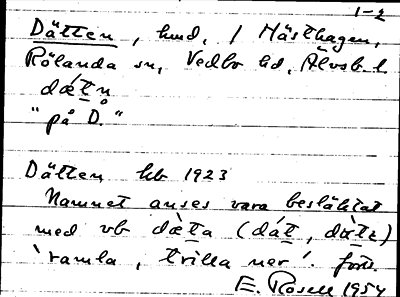 1-2
Dätten, hmd, i Hästhagen,
Rölanda sn, Vedbo hd, Älvsb. l.
dæ̀tn̥
"på D."
Dätten hb 1923
Namnet anses vara besläktat
med vb dæ̀ta (dát, dæ̀tɩ)
'ramla, trilla ner'. förf.
E. Rosell 1954